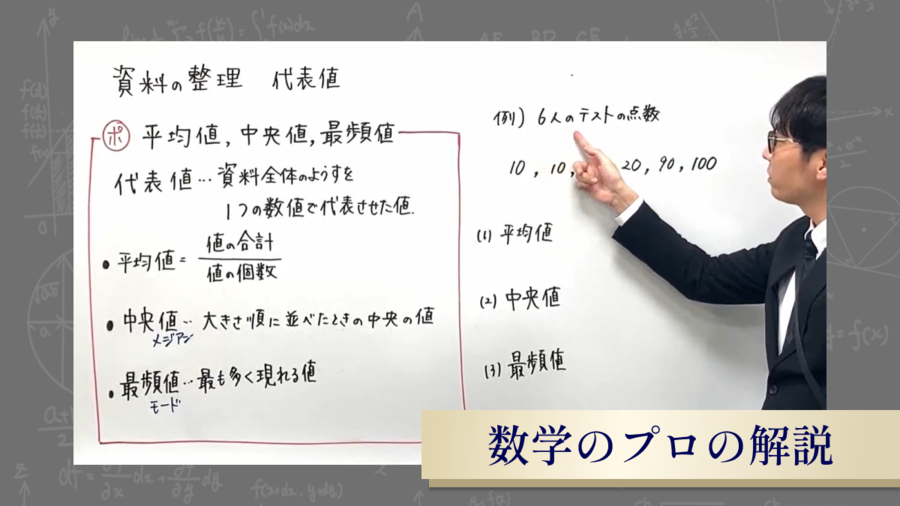 資料の整理 代表値
ポ 平均値,中央値,最頻値
代表値…資料全体のようすを
1つの数値で代表させた値.
• 平均値= 値の合計
値の個数
• 中央値… 大きさ順に並べたときの中央の値
メジアン
• 最頻値…最も多く現れる値
モード
例) 6人のテストの点数
10, 10, 20, 90, 100
(1) 平均値
(2) 中央値
(3) 最頻値
数学のプロの解説